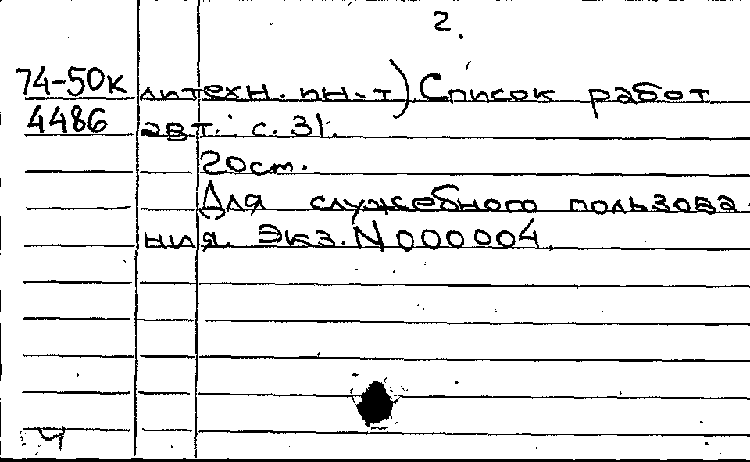 2.
74-50к литехн. ин-т) Список работ
4486 авт.: с. 31.
20см.
Для служебного пользова-
ния. Экз. N 000004.
Ч